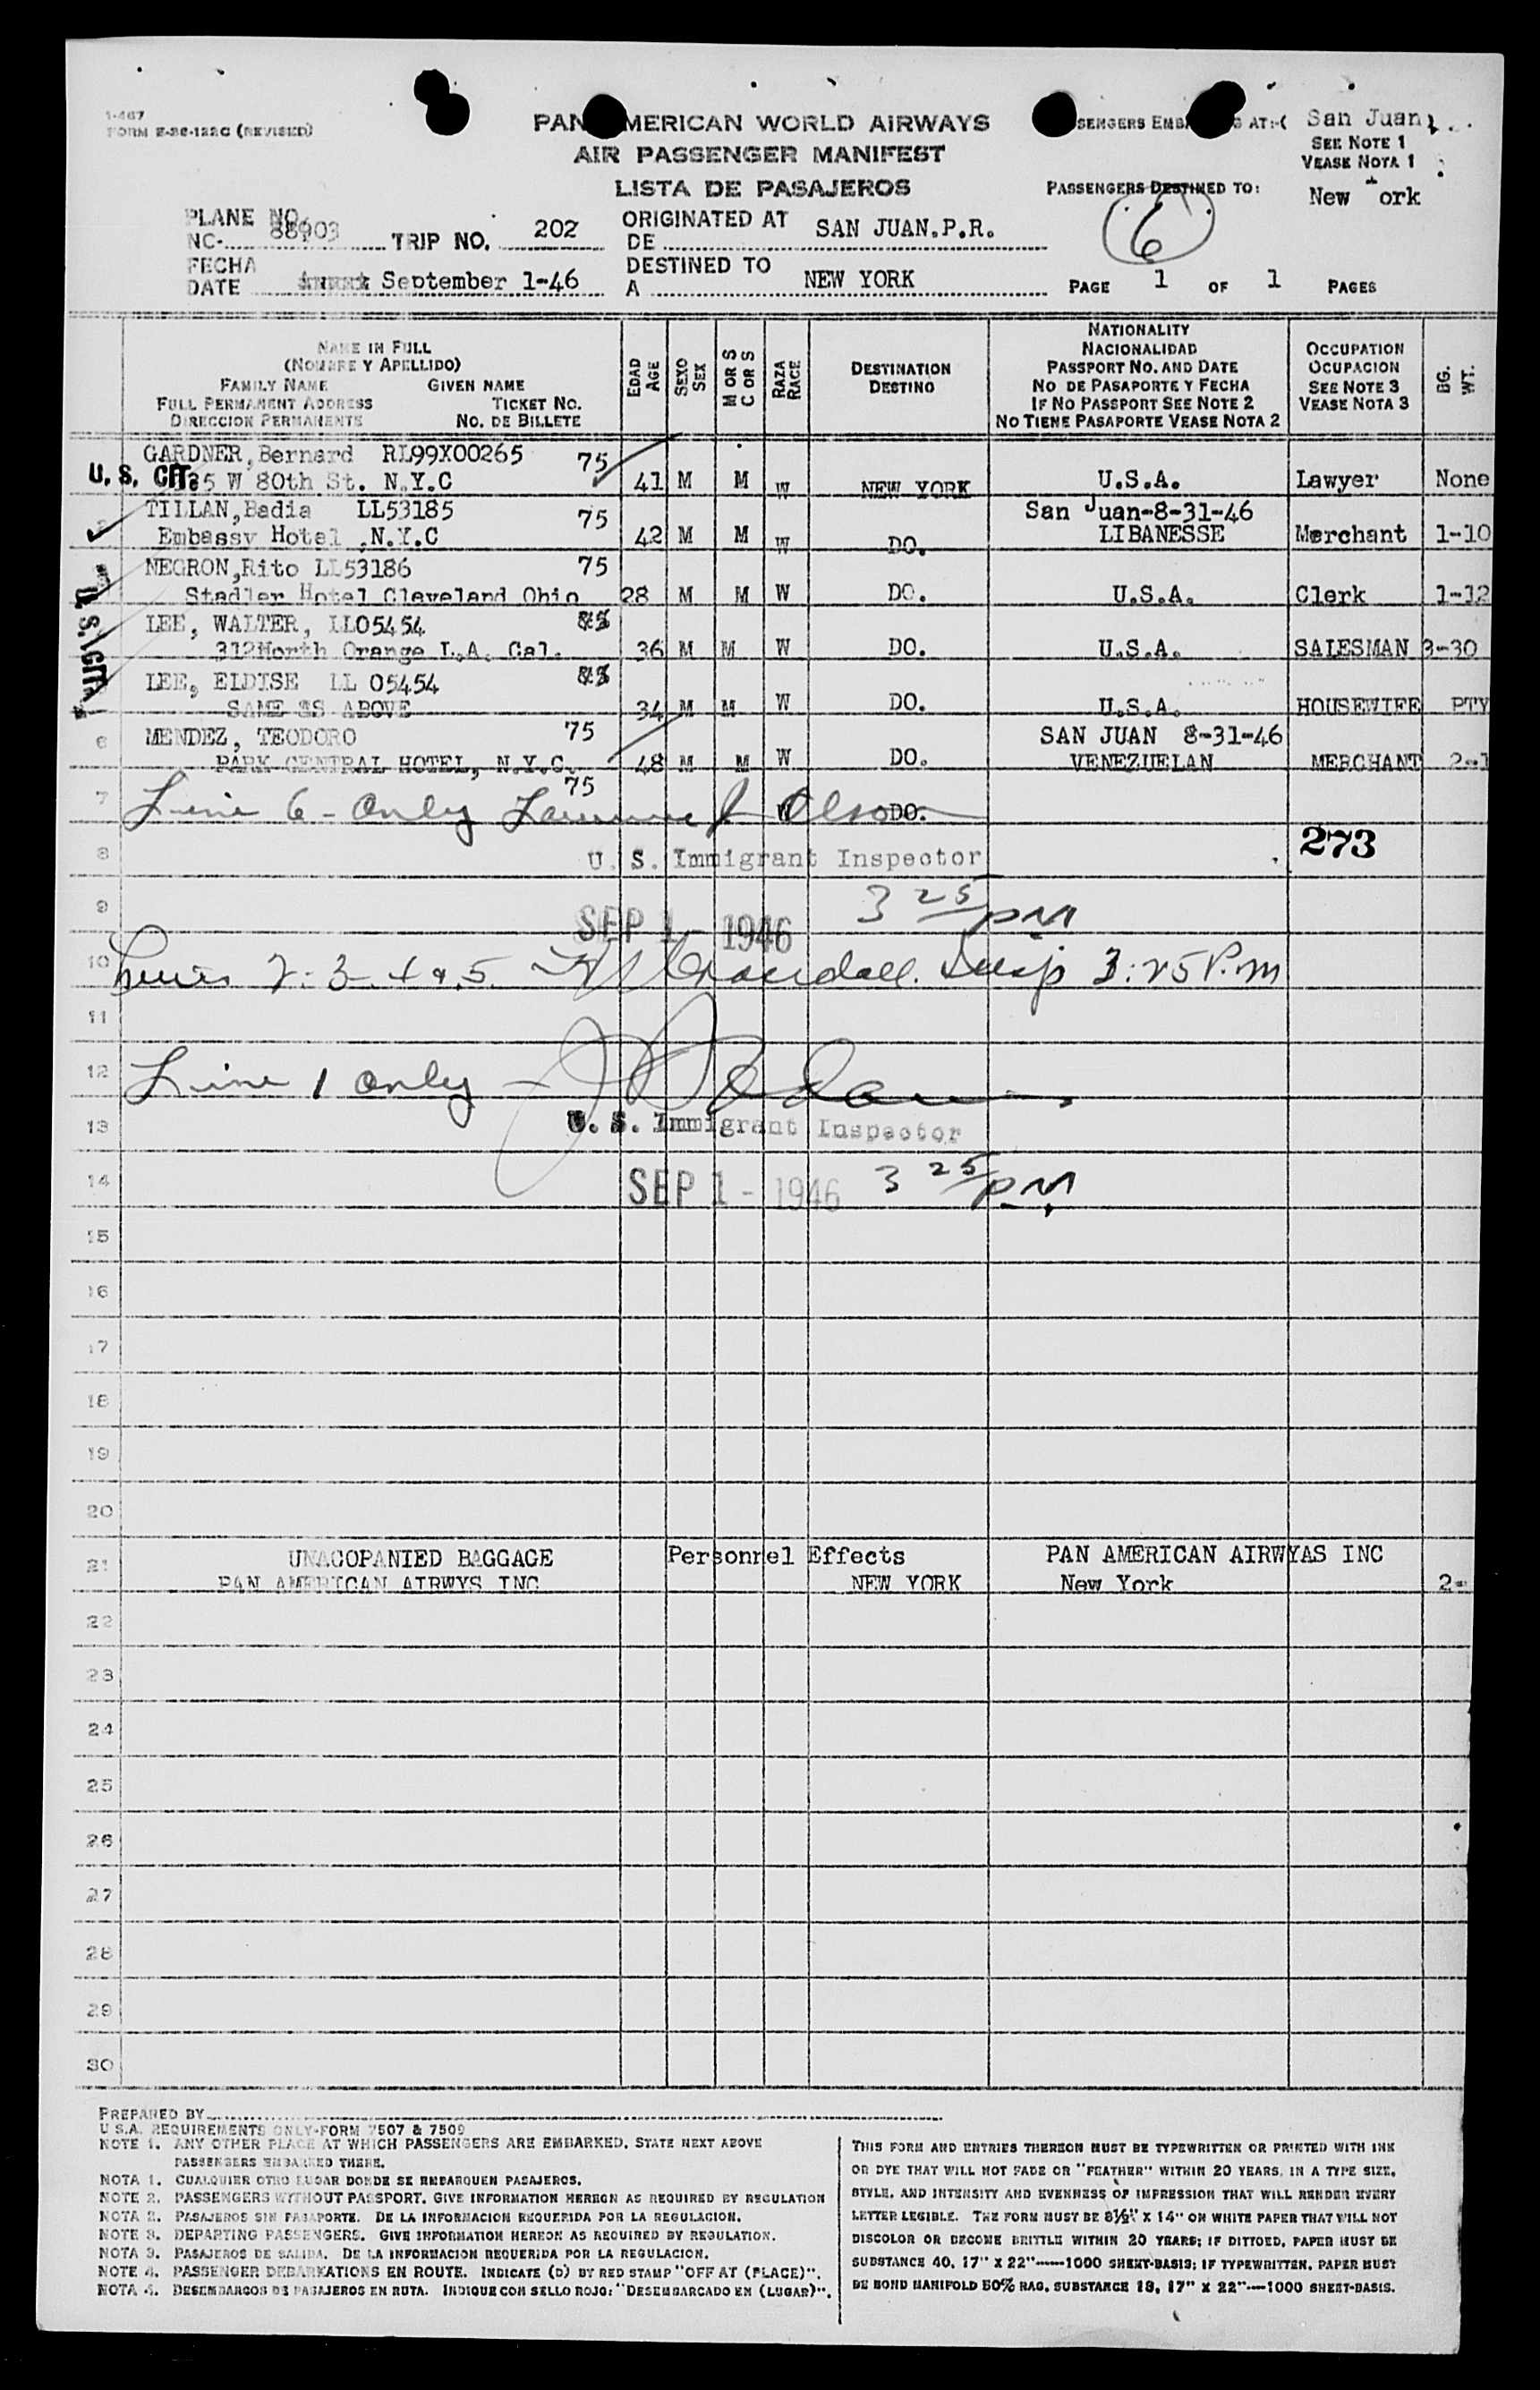 1-467
FORM E-36-122C (REVISED)
PAN AMERICAN WORLD AIRWAYS
AIR PASSENGER MANIFEST
LISTA DE PASAJEROS
SENGERS EMB G AT:-( San Juan
SEE NOTE 1
VEASE NOTA 1
PASSENGERS DESTINED TO: New York
6
PLANE NO.
NC- 88903 TRIP NO. 202
ORIGINATED AT
DE SAN JUAN.P.R.
FECHA
DATE September 1-46
DESTINED TO
A NEW YORK
PAGE 1 OF 1 PAGES
NAME IN FULL
(NOMBRE Y APELLIDO)
FAMILY NAME GIVEN NAME
FULL PERMANENT ADDRESS TICKET NO.
DIRECCION PERMANENTE NO. DE BILLETE
EDAD
AGE
SEXO
SEX
M OR S
C OR S
RAZA
RACE
DESTINATION
DESTINO
NATIONALITY
NACIONALIDAD
PASSPORT NO. AND DATE
NO DE PASAPORTE Y FECHA
IF NO PASSPORT SEE NOTE 2
NO TIENE PASAPORTE VEASE NOTA 2
OCCUPATION
OCUPACION
SEE NOTE 3
VEASE NOTA 3
BG.
WT.
GARDNER,Bernard RL99X00265 75
U. S. CIT. 5 W 80th St. N.Y.C 41 M M W NEW YORK U.S.A. Lawyer None
TILLAN,Badia LL53185 75 San Juan-8-31-46
Embassy Hotel ,N.Y.C 42 M M W DO. LIBANESSE Merchant 1-10
NEGRON,Rito LL53186 75
Stadler Hotel Cleveland Ohio 28 M M W DO. U.S.A. Clerk 1-12
U. S. CIT.
LEE, WALTER, LL05454
312North Orange L.A. Cal. 36 M M W DO. U.S.A. SALESMAN 3-30
LEE, ELDISE LL 05454
SAME SS ABOVE 34 M M W DO. U.S.A. HOUSEWIFE PTY
6 MENDEZ, TEODORO 75 SAN JUAN 8-31-46
PARK CENTRAL HOTEL, N.Y.C. 48 M M W DO. VENEZUELAN MERCHANT 2-1
7 75
Line 6 - only Olson W DO.
8 U. S. Immigrant Inspector 273
9 SEP 1 - 1946 3 25/PM
10 Lines 2-3-4 & 5. Crandall. Insp 3:25 P.m
11
12 Line 1 only
13 U. S. Immigrant Inspector
14 SEP 1 - 1946 3 25/PM
15
16
17
18
19
20
21 UNACOPANIED BAGGAGE Personnel Effects PAN AMERICAN AIRWYAS INC
PAN AMERICAN AIRWYS INC NEW YORK New York 2-
22
23
24
25
26
27
28
29
30
PREPARED BY
U S.A. REQUIREMENTS ONLY-FORM 7507 & 7509
NOTE 1. ANY OTHER PLACE AT WHICH PASSENGERS ARE EMBARKED, STATE NEXT ABOVE
PASSENGERS EMBARKED THERE.
NOTA 1. CUALQUIER OTRO LUGAR DONDE SE EMBARQUEN PASAJEROS.
NOTE 2. PASSENGERS WITHOUT PASSPORT. GIVE INFORMATION HEREON AS REQUIRED BY REGULATION
NOTA 2. PASAJEROS SIN PASAPORTE. DE LA INFORMACION REQUERIDA POR LA REGULACION.
NOTE 3. DEPARTING PASSENGERS. GIVE INFORMATION HEREON AS REQUIRED BY REGULATION.
NOTA 3. PASAJEROS DE SALIDA. DE LA INFORMACION REQUERIDA POR LA REGULACION.
NOTE 4. PASSENGER DEBARKATIONS EN ROUTE. INDICATE (D) BY RED STAMP "OFF AT (PLACE)".
NOTA 4. DESEMBARCOS DE PASAJEROS EN RUTA. INDIQUE CON SELLO ROJO: "DESEMBARCADO EN (LUGAR)".
THIS FORM AND ENTRIES THEREON MUST BE TYPEWRITTEN OR PRINTED WITH INK
OR DYE THAT WILL NOT FADE OR "FEATHER" WITHIN 20 YEARS, IN A TYPE SIZE,
STYLE, AND INTENSITY AND EVENNESS OF IMPRESSION THAT WILL RENDER EVERY
LETTER LEGIBLE. THE FORM MUST BE 8½" X 14" ON WHITE PAPER THAT WILL NOT
DISCOLOR OR BECOME BRITTLE WITHIN 20 YEARS; IF DITTOED, PAPER MUST BE
SUBSTANCE 40, 17" X 22"-----1000 SHEET-BASIS; IF TYPEWRITTEN, PAPER MUST
BE BOND MANIFOLD 50% RAG, SUBSTANCE 18, 17" X 22"---1000 SHEET-BASIS.